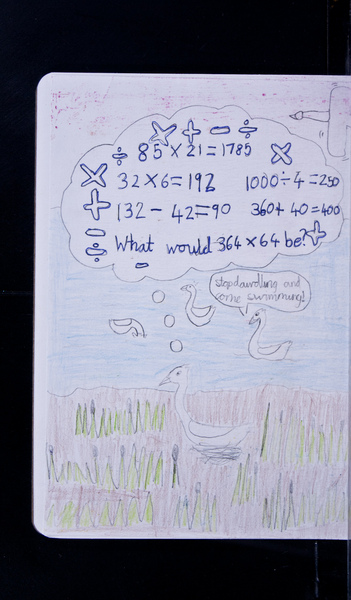 × + − ÷
÷ 85 × 21 = 1785 ×
× 32 × 6 = 192 1000 ÷ 4 = 250
+ 132 − 42 = 90 360 + 40 = 400
− What would 364 × 64 be? +
÷ −
stop dawdling and
come swimming!